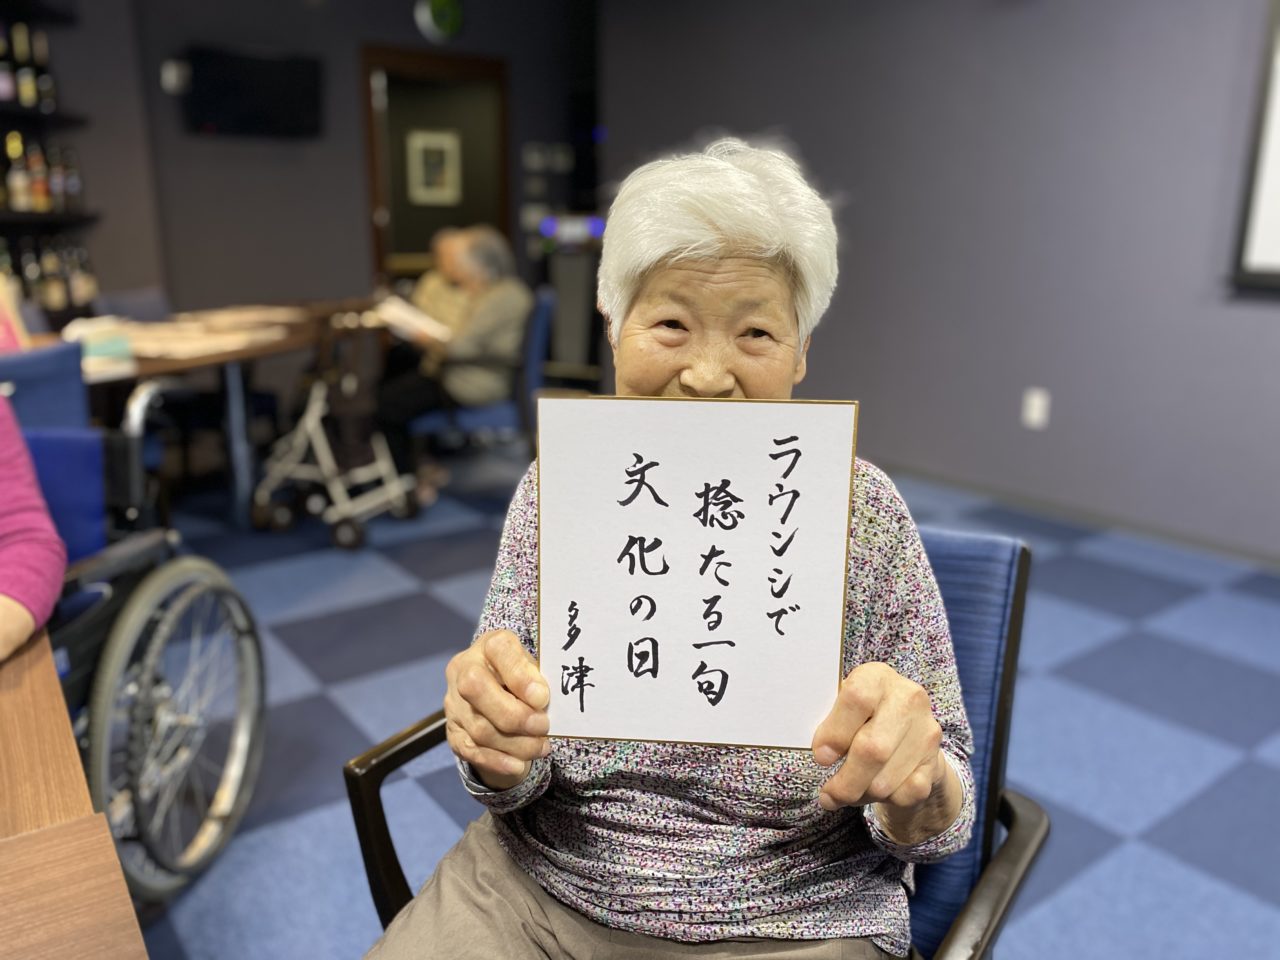 ラウンジで
捻たる一句
文化の日
多津